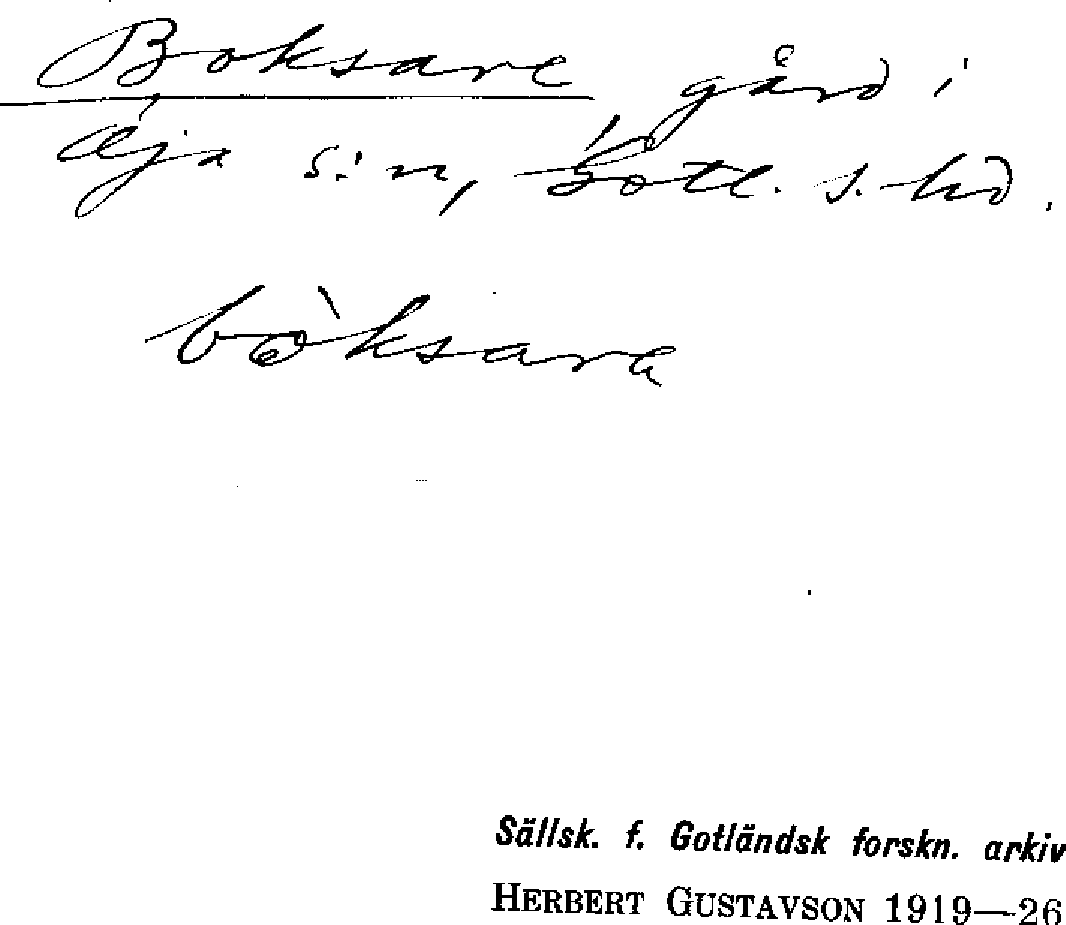 Boksare gård i
Öja s:n, Gotl. s. hd.
bòksara
Sällsk. f. Gotländsk forskn. arkiv
HERBERT GUSTAVSON 1919—26